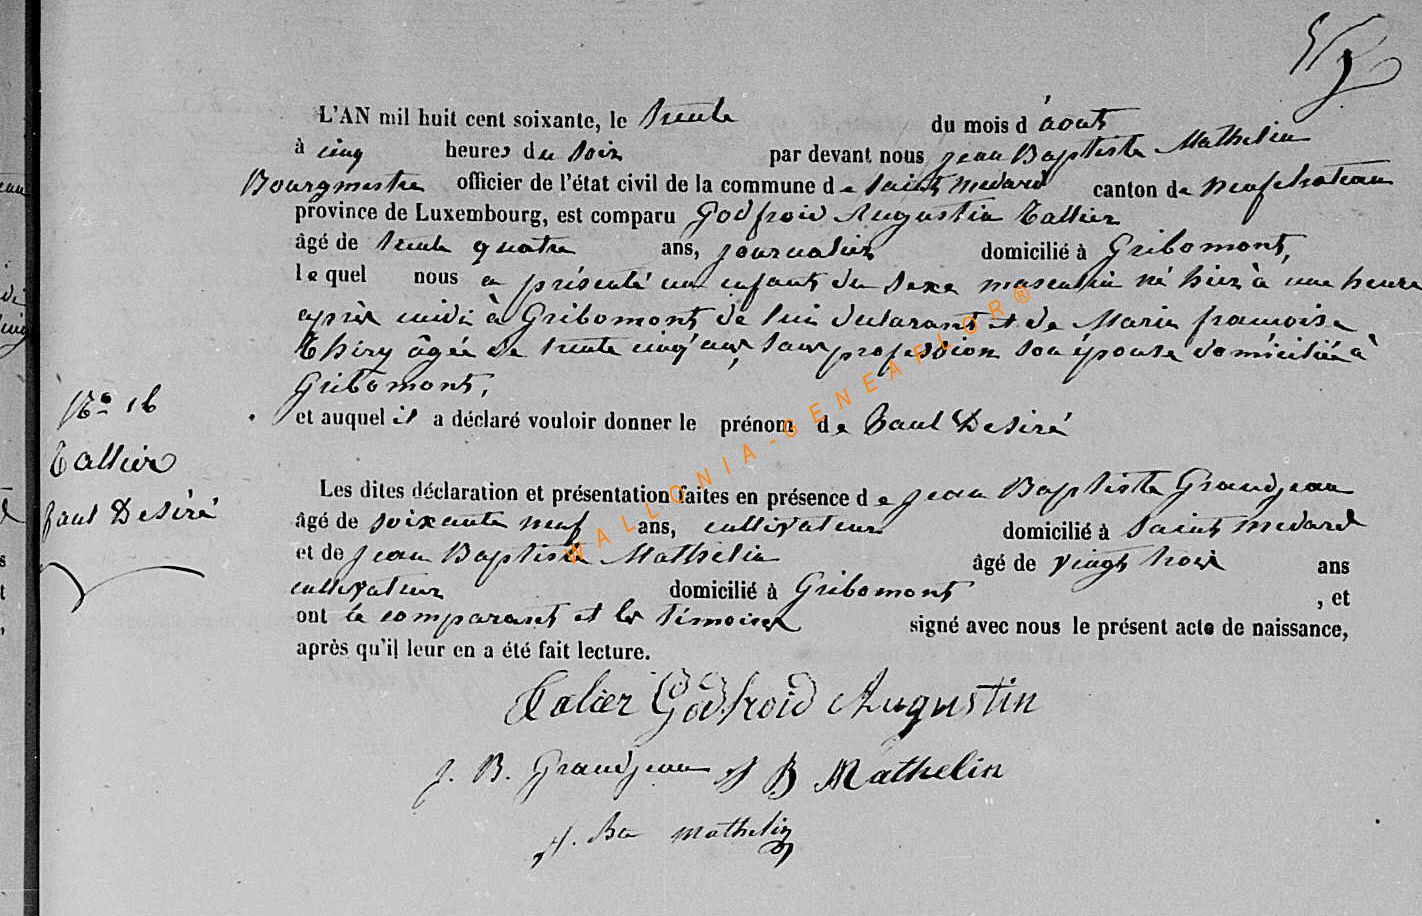 L'AN mil huit cent soixante, le trente du mois d'août
à cinq heures du soir par devant nous jean Baptiste Mathelin
Bourgmestre officier de l'état civil de la commune de Saint Medard canton de neufchateau
province de Luxembourg, est comparu Godfroid Augustin Tallier
âgé de trente quatre ans, journalier domicilié à Gribomont,
lequel nous a présenté un enfant du sexe masculin né hier à une heure
après midi à Gribomont de lui déclarant et de Marie françoise
Thiry âgée de trente cinq ans, sans profession son épouse domiciliée à
Gribomont,
et auquel il a déclaré vouloir donner le prénom de Paul Désiré
No 16
Tallier
Paul Désiré
Les dites déclaration et présentation faites en présence de jean Baptiste Grandjean
âgé de soixante neuf ans, cultivateur domicilié à Saint Medard
et de jean Baptiste Mathelin âgé de vingt trois ans
cultivateur domicilié à Gribomont , et
ont le comparant et les témoins signé avec nous le présent acte de naissance,
après qu'il leur en a été fait lecture.
Talier Godfroid Augustin
J. B. Grandjean J B Mathelin
J. Bte Mathelin
WALLONIA-GENEAFLOR®